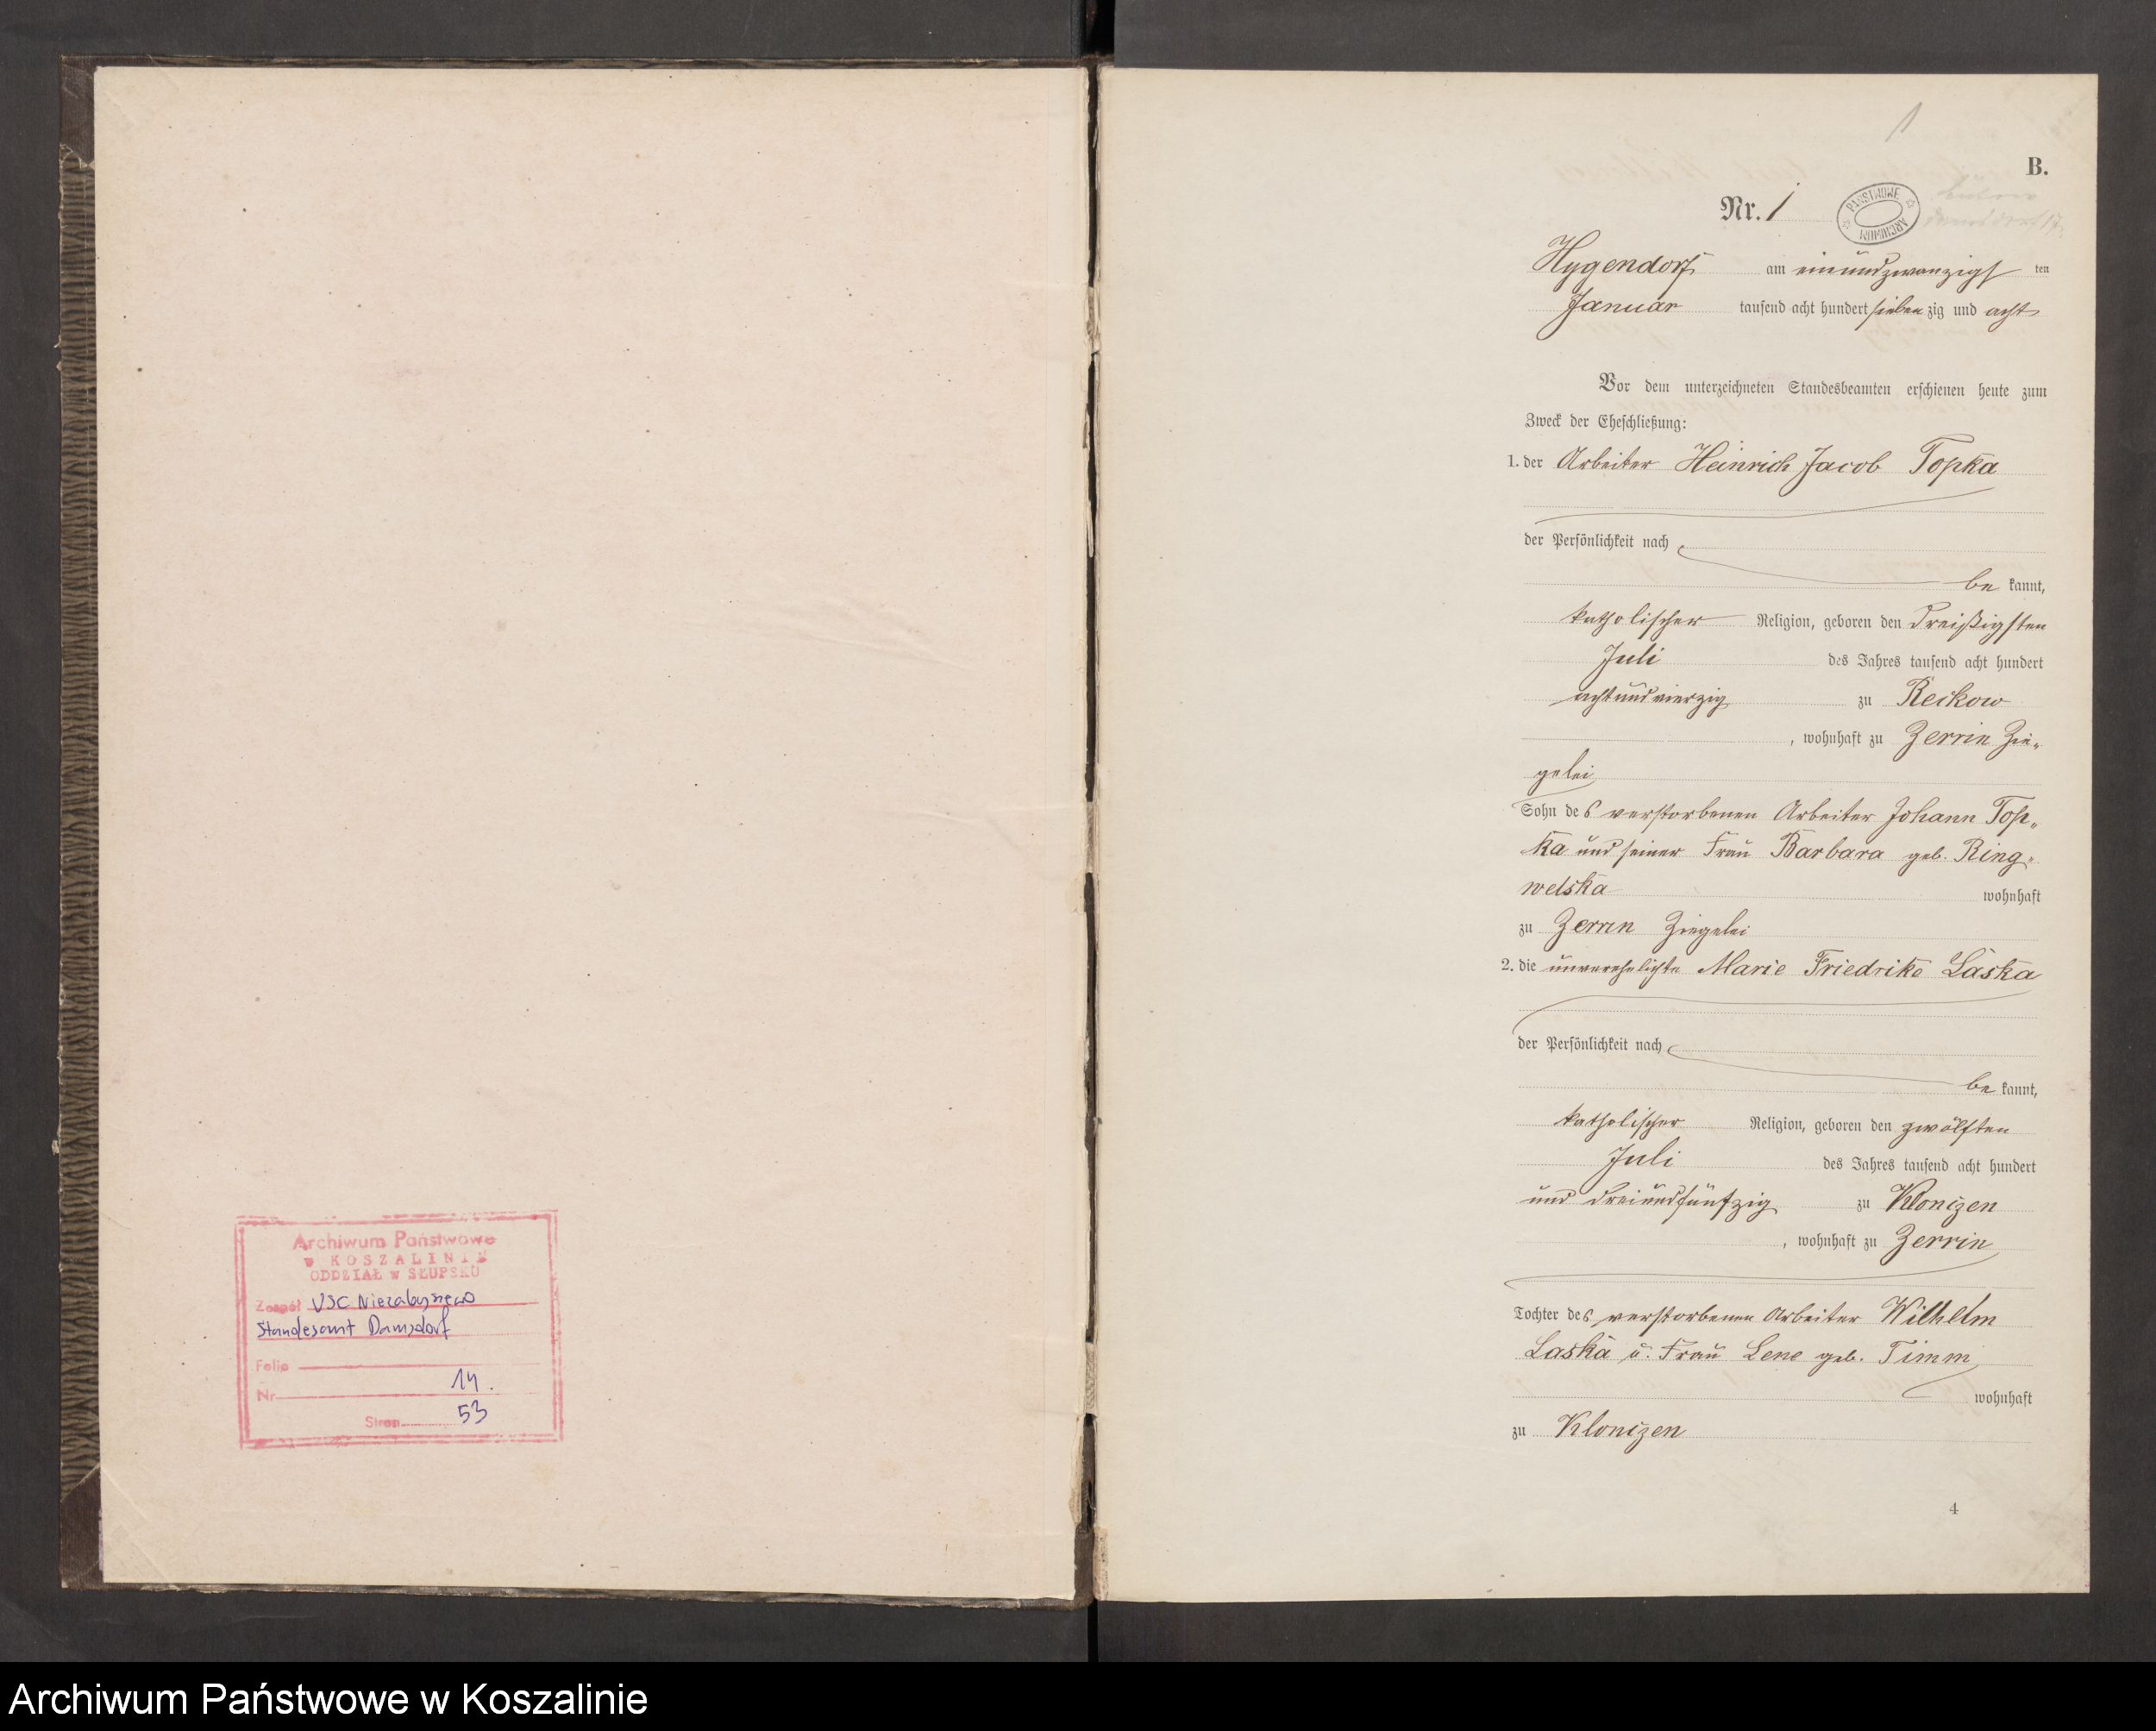 Archiwum Państwowe
w KOSZALINIE
ODDZIAŁ w SŁUPSKU
Zespół USC Niezabyszewo
Standesamt Damsdorf
Folio
Nr 14.
Stron 53
1
B.
Nr. 1
PAŃSTWOWE ARCHIWUM
Hygendorf am einundzwanzigsten
Januar tausend acht hundert siebenzig und acht
Vor dem unterzeichneten Standesbeamten erschienen heute zum
Zweck der Eheschließung:
1. der Arbeiter Heinrich Jacob Topka
der Persönlichkeit nach
be kannt,
katholischer Religion, geboren den dreißigsten
Juli des Jahres tausend acht hundert
achtundvierzig zu Reckow
, wohnhaft zu Zerrin Zie„
gelei
Sohn des verstorbenen Arbeiter Johann Top„
ka und seiner Frau Barbara geb. Ring„
welska wohnhaft
zu Zerrin Ziegelei
2. die unverehelichte Marie Friedrike Laska
der Persönlichkeit nach
be kannt,
katholischer Religion, geboren den zwölften
Juli des Jahres tausend acht hundert
und dreiundfünfzig zu Klonczen
, wohnhaft zu Zerrin
Tochter des verstorbenen Arbeiter Wilhelm
Laska u. Frau Lene geb. Timm
wohnhaft
zu Klonczen
4
Archiwum Państwowe w Koszalinie